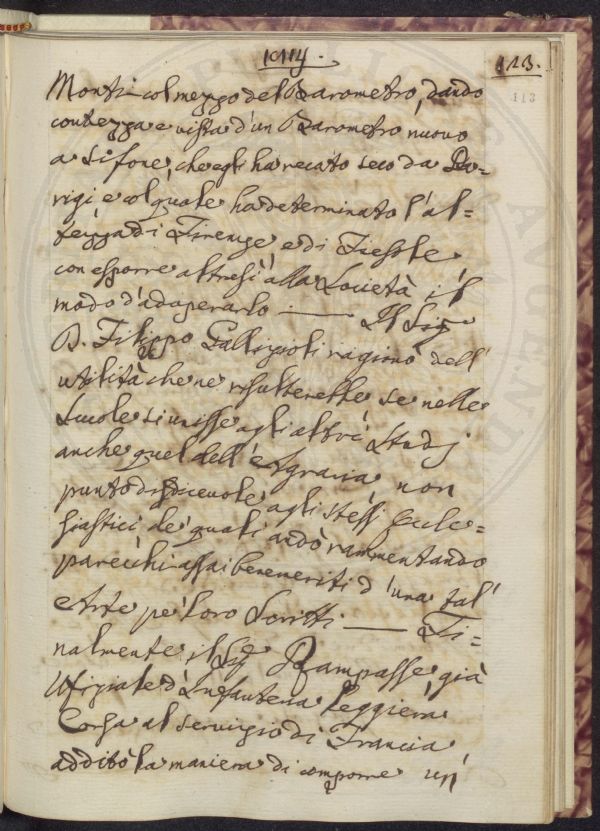 113.
Monti col mezzo del Barometro, dando
contezza e vista d'un Barometro nuovo
a Sifone, che egli ha recato seco da Pa=
rigi e col quale ha determinato l'al=
tezza di Firenze e di Fiesole
con esporre altresì alla Società il
modo d'adoperarlo —— Il Sig.
D. Filippo Gallizioli ragionò dell'
utilità che ne risulterebbe se nelle
Scuole si unisse agli altri Studj
anche quel dell'Agraria non
punto disdicevole agli stessi Eccle=
siastici de' quali andò rammentando
parecchi assai benemeriti d'una tal'
Arte pe' loro Scritti —— Fi=
nalmente il Sig. Rampasse già
Ufiziale d'Infanteria Leggiera
Corsa al servizio di Francia
additò la maniera di comporre un